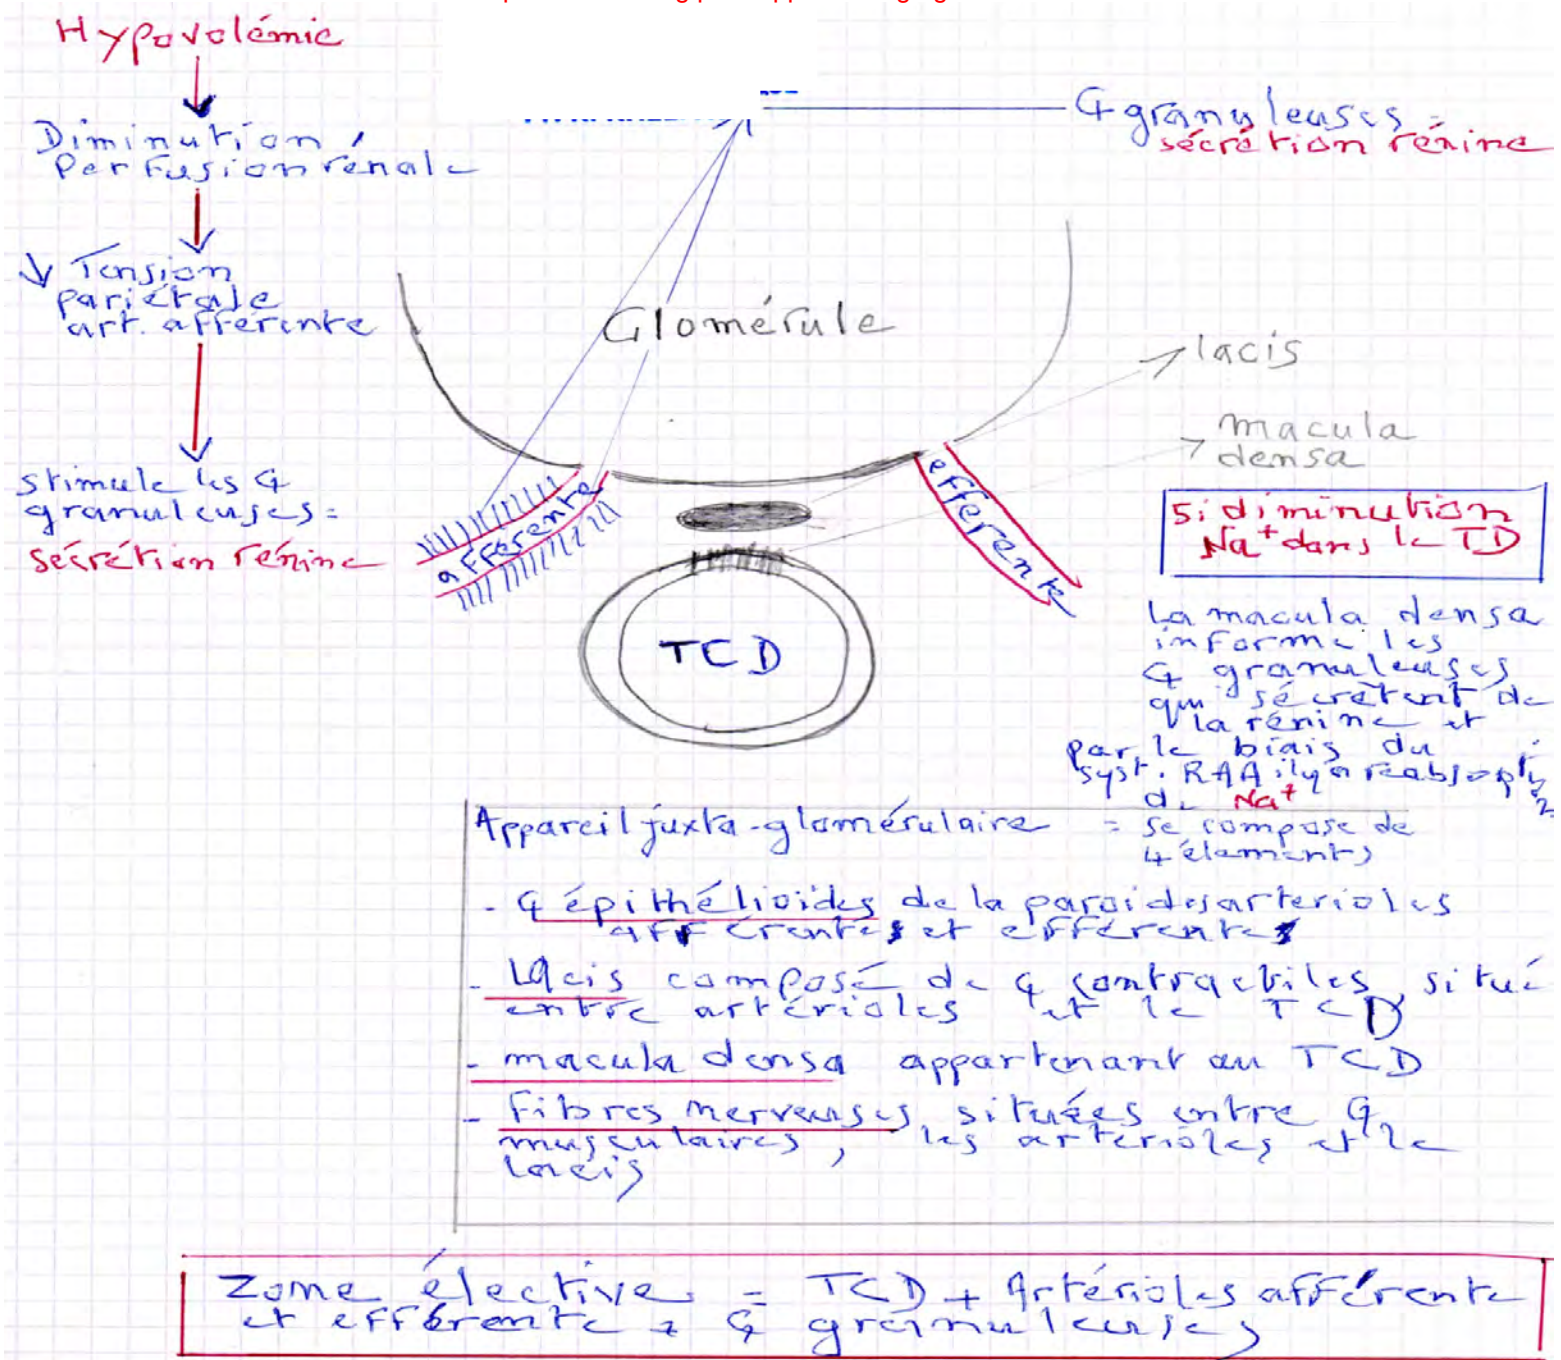 Hypovolémie
Diminution
Perfusion rénale
↓ Tension
pariétale
art. afférente
stimule les C
granuleuses =
sécrétion rénine
C granuleuses =
sécrétion rénine
Glomérule
lacis
macula
densa
afférente
efférente
TCD
Si diminution
Na⁺ dans le TD
La macula densa
informe les
C granuleuses
qui sécrètent de
la rénine et
par le biais du
syst. RAA il y a réabsoption
de Na⁺
Appareil juxta-glomérulaire = se compose de
4 élements
- C épithélioïdes de la paroi des arterioles
afférentes et efférentes
- Lacis composé de C contractiles, situé
entre artérioles et le TCD
- macula densa appartenant au TCD
- Fibres nerveuses, situées entre C
musculaires, les artérioles et le
lacis
Zone élective = TCD + Artérioles afférente
et efférente + C granuleuses